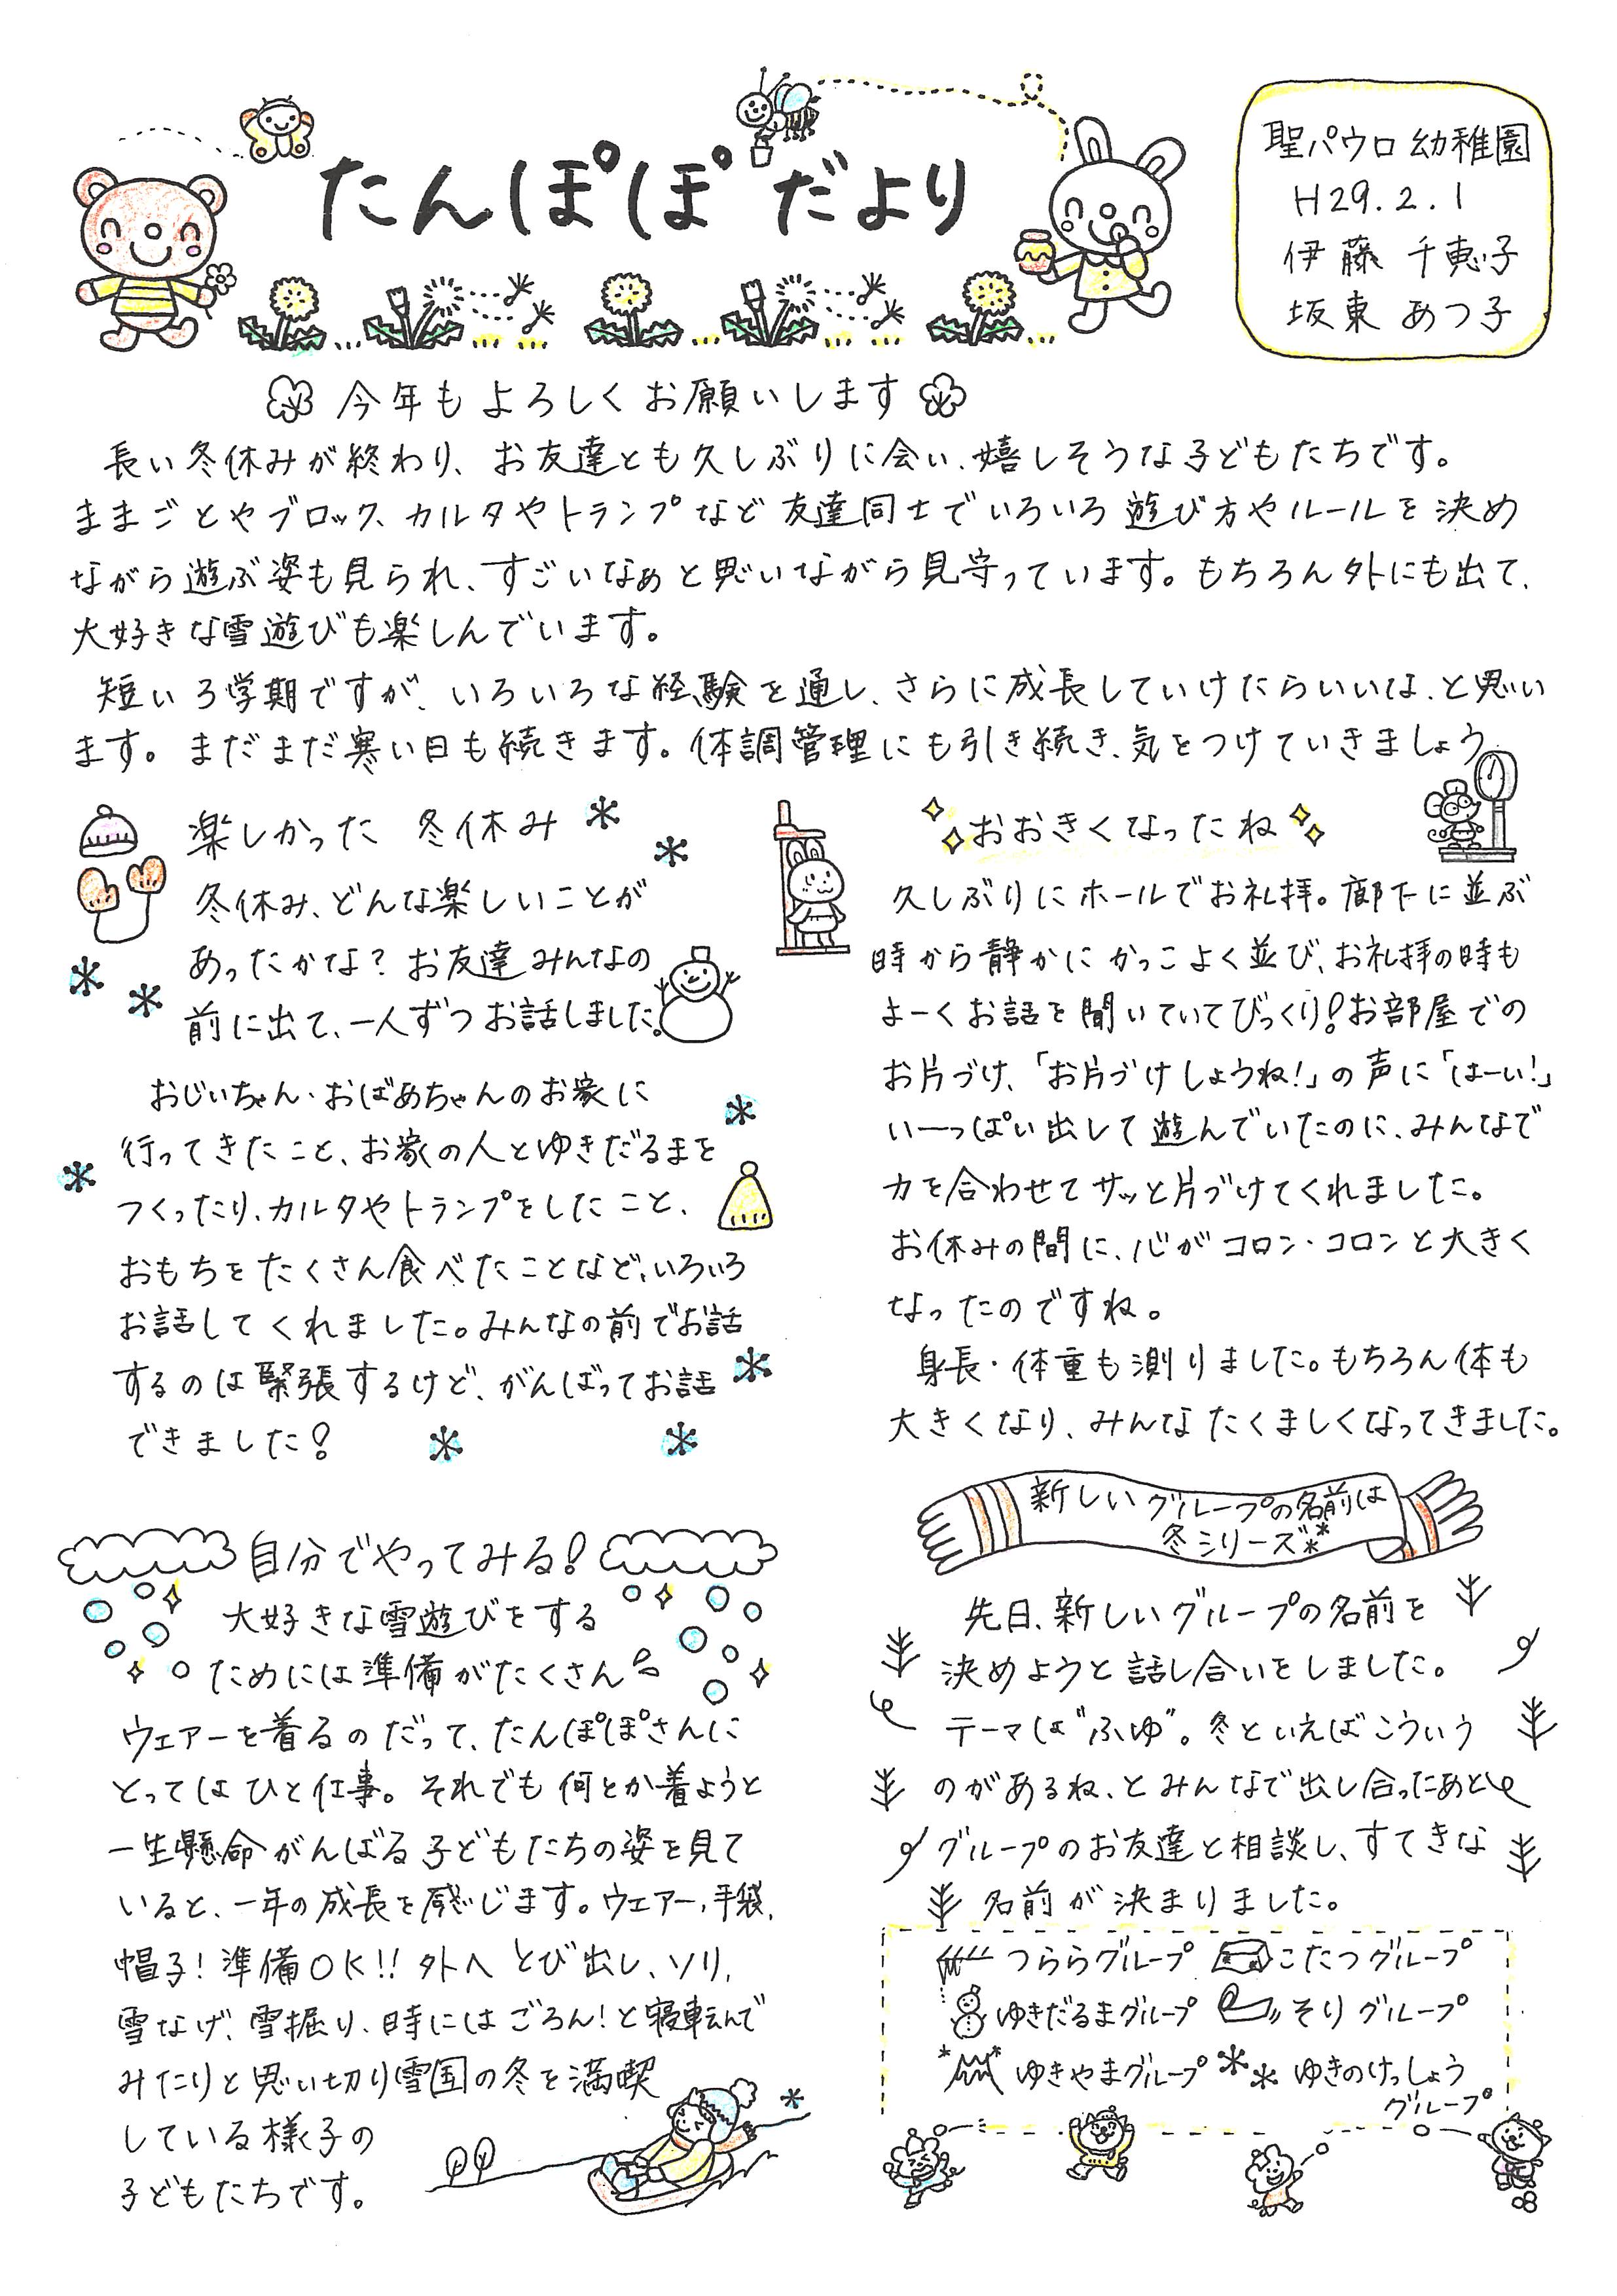 たんぽぽだより
聖パウロ幼稚園
H29.2.1
伊藤 千恵子
坂東 あつ子
今年もよろしくお願いします
長い冬休みが終わり、お友達とも久しぶりに会い、嬉しそうな子どもたちです。
ままごとやブロック、カルタやトランプなど友達同士でいろいろ遊び方やルールを決め
ながら遊ぶ姿も見られ、すごいなぁと思いながら見守っています。もちろん外にも出て、
大好きな雪遊びも楽しんでいます。
短い3学期ですが、いろいろな経験を通し、さらに成長していけたらいいな、と思い
ます。まだまだ寒い日も続きます。体調管理にも引き続き、気をつけていきましょう。
楽しかった 冬休み
冬休み、どんな楽しいことが
あったかな?お友達みんなの
前に出て、一人ずつお話しました。
おじいちゃん・おばあちゃんのお家に
行ってきたこと、お家の人とゆきだるまを
つくったり、カルタやトランプをしたこと、
おもちをたくさん食べたことなど、いろいろ
お話してくれました。みんなの前でお話
するのは緊張するけど、がんばってお話
できました!
自分でやってみる!
大好きな雪遊びをする
ためには準備がたくさん
ウェアーを着るのだって、たんぽぽさんに
とってはひと仕事。それでも何とか着ようと
一生懸命がんばる子どもたちの姿を見て
いると、一年の成長を感じます。ウェアー、手袋、
帽子!準備OK!!外へとび出し、ソリ、
雪なげ、雪掘り、時にはごろん!と寝転んで
みたりと思い切り雪国の冬を満喫
している様子の
子どもたちです。
おおきくなったね
久しぶりにホールでお礼拝。廊下に並ぶ
時から静かにかっこよく並び、お礼拝の時も
よーくお話を聞いていてびっくり!お部屋での
お片づけ、「お片づけしょうね!」の声に「はーい!」
いーっぱい出して遊んでいたのに、みんなで
力を合わせてサッと片づけてくれました。
お休みの間に、心がコロン・コロンと大きく
なったのですね。
身長・体重も測りました。もちろん体も
大きくなり、みんなたくましくなってきました。
新しいグループの名前は
冬シリーズ*
先日、新しいグループの名前を
決めようと話し合いをしました。
テーマは“ふゆ”。冬といえばこういう
のがあるね、とみんなで出し合ったあと
グループのお友達と相談し、すてきな
名前が決まりました。
つららグループ こたつグループ
ゆきだるまグループ そりグループ
ゆきやまグループ ゆきのけっしょう
グループ